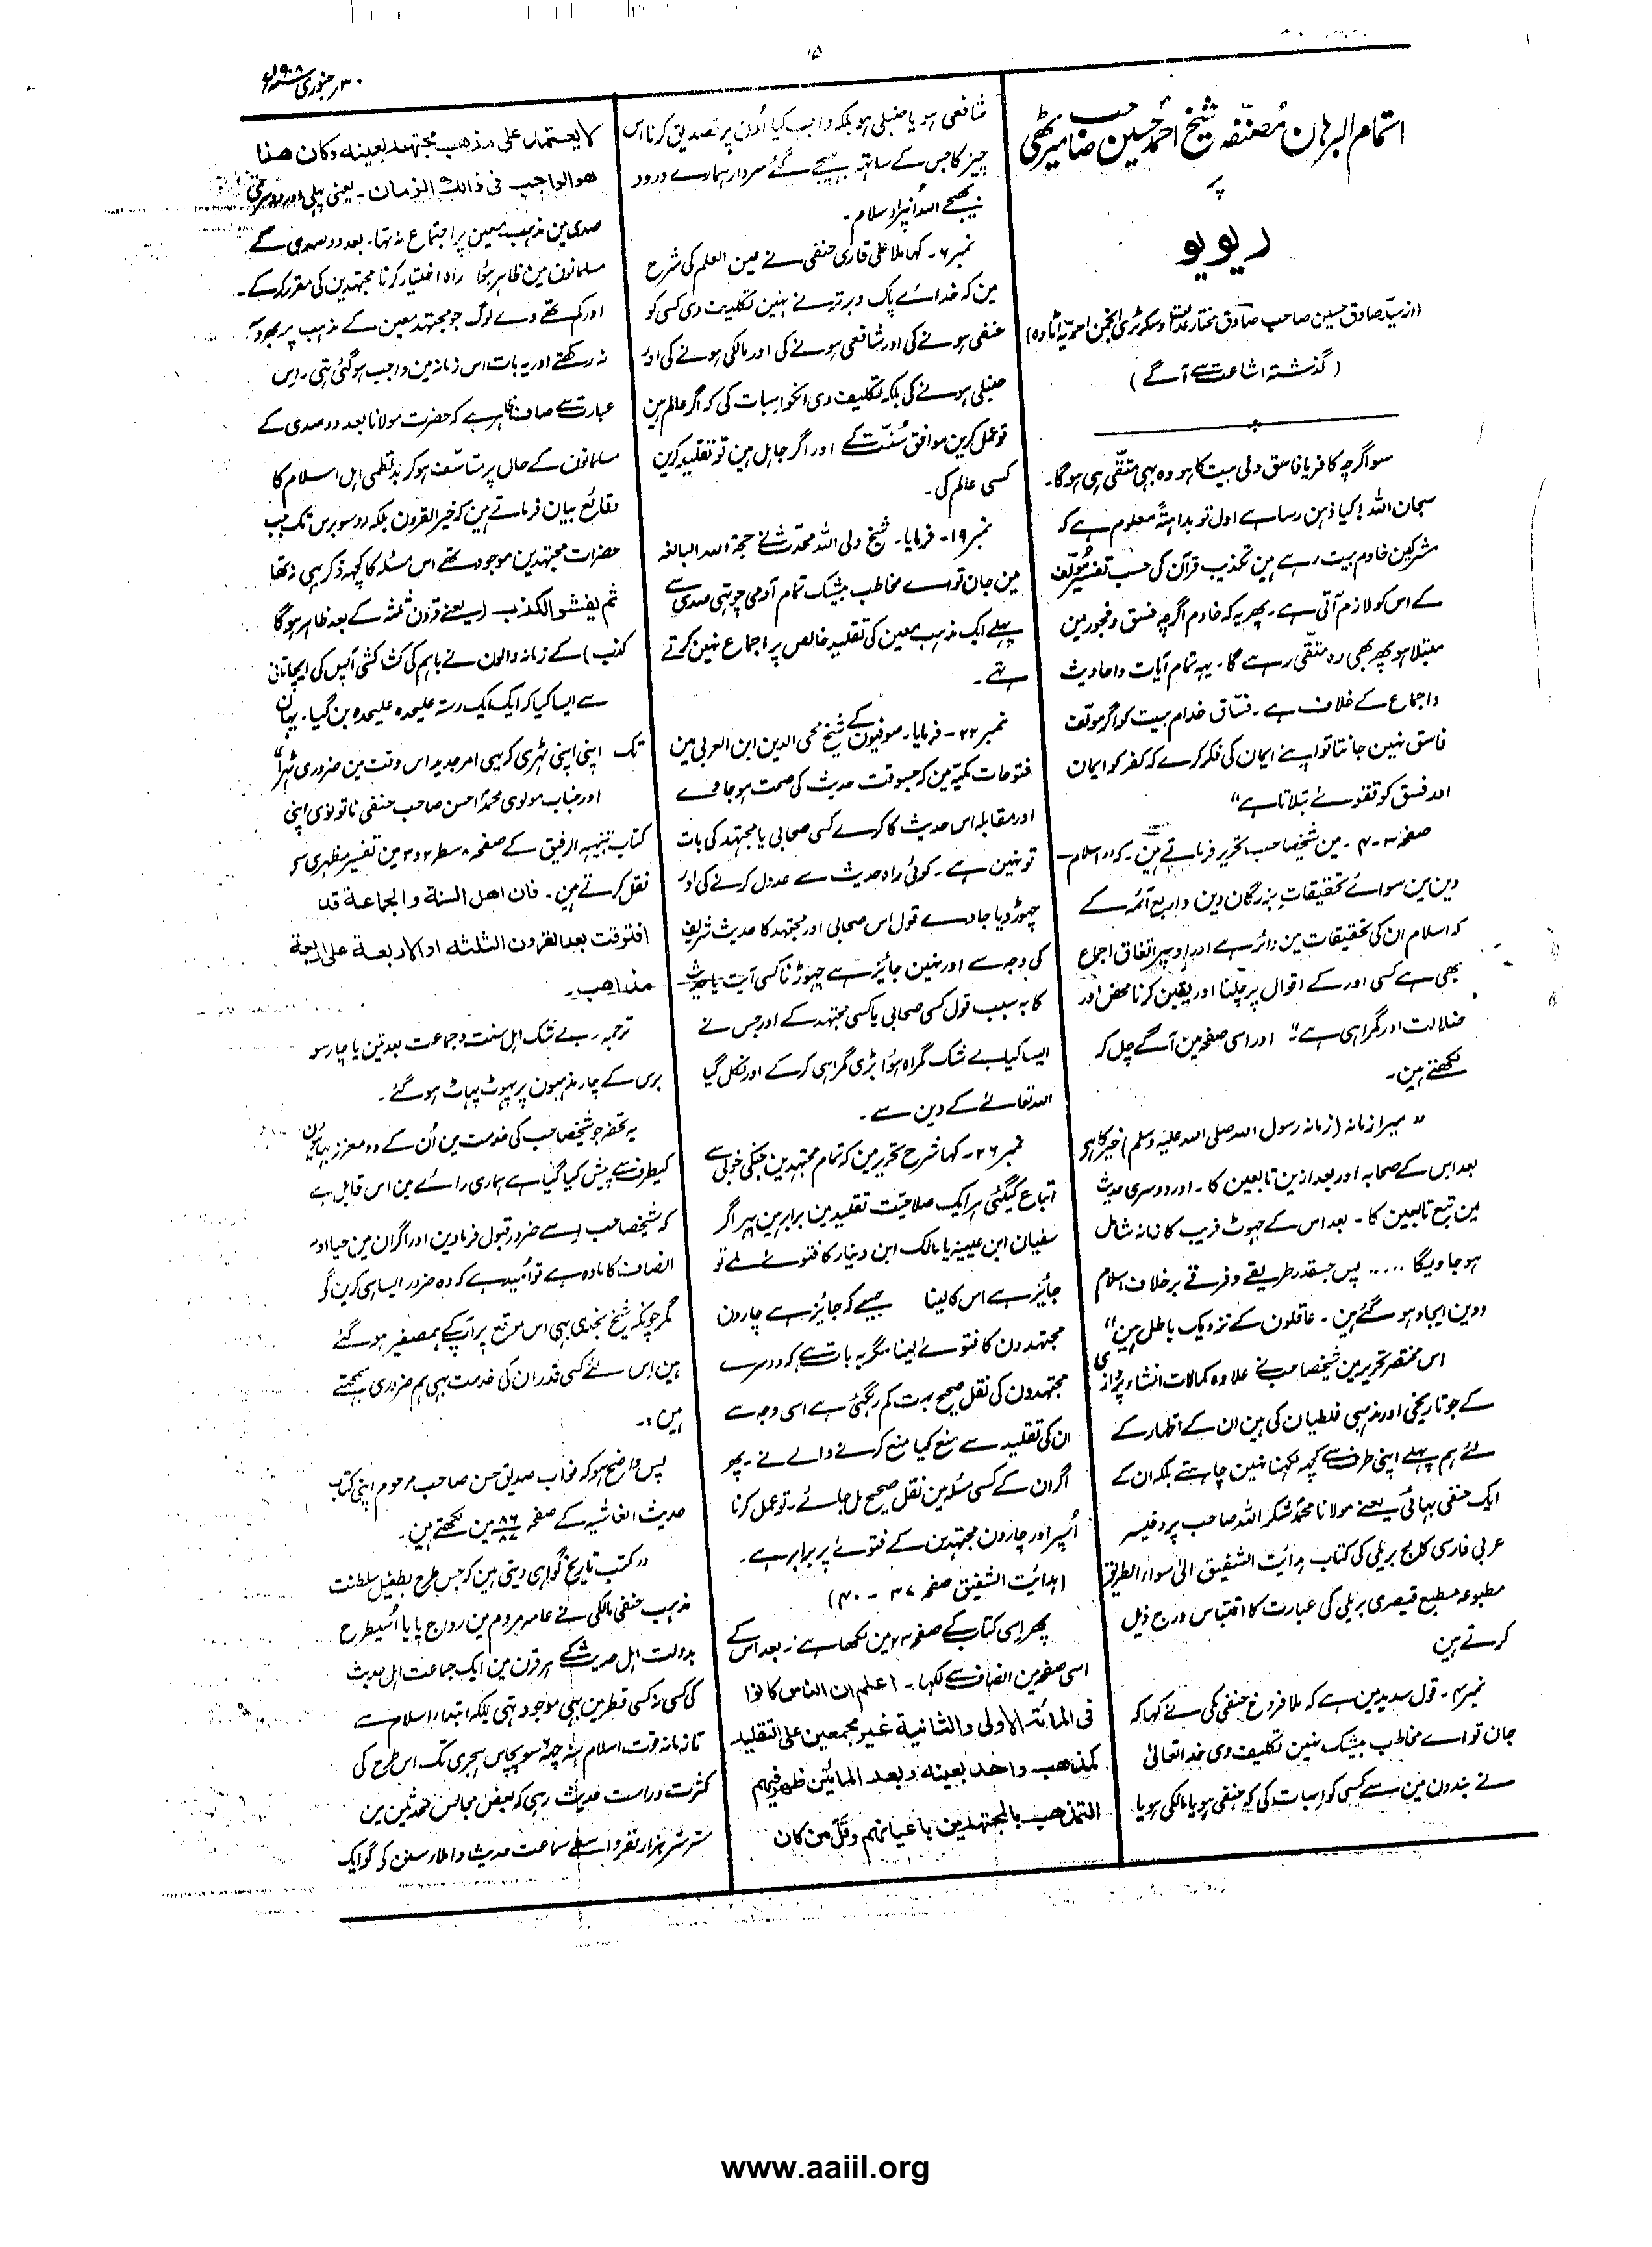 ۱۵
۳۰ جنوری ۱۹۰۸ء
اتمام البرہان مُصنّفہ شیخ احمد حسین صاحب میرٹھی
پر
ریویو
(از سیّد صادق حسین صاحب صادق مختار عدالت و سکرٹری انجمن احمدیہ اٹاوہ)
(گذشتہ اشاعت سے آگے)
سو اگرچہ کافر یا فاسق ولی بیت کا ہو وہ بھی متقی ہی ہوگا۔
سبحان اللہ! کیا ذہن رسا ہے اول تو بداہتہً معلوم ہے کہ
مشرکین خادم بیت رہے ہین تکذیب قرآن کی حسب تفسیر مؤلف
کے اس کو لازم آتی ہے۔ پھر یہ کہ خادم اگرچہ فسق و فجور مین
مبتلا ہو پھر بھی وہ متقی رہے گا۔ یہہ تمام آیات و احادیث
و اجماع کے خلاف ہے۔ فسّاق خدام بیت کو اگر مولف
فاسق نہین جانتا تو اپنے ایمان کی فکر کرے کہ کفر کو ایمان
اور فسق کو تقوےٰ بتلاتا ہے"
صفحہ ۳-۴ - مین شیخصاحب تحریر فرماتے ہین۔ کہ "اسلام۔
دین مین سوائے تحقیقات بزرگان دین و اربع آئمہ کے
کہ اسلام ان کی تحقیقات مین دائر ہے اور اوسپر اتفاق اجماع
بھی ہے کسی اور کے اقوال پر چلنا اور یقین کرنا محض اور
ضلالت اور گمراہی ہے" اور اسی صفحہ مین آگے چل کر
لکھتے ہین۔
"میرا زمانہ (زمانہ رسول اللہ صلی اللہ علیہ وسلم) خیر کا ہے
بعد اس کے صحابہ اور بعد ازین تابعین کا۔ اور دوسری حدیث
مین تبع تابعین کا۔ بعد اس کے جہوٹ فریب کا زمانہ شامل
ہو جاویگا ..... پس جسقدر طریقے و فرقے برخلاف اسلام
و دین ایجاد ہو گئے ہین۔ عاقلون کے نزدیک باطل ہین"
اس مختصر تحریر مین شیخصاحب نے علاوہ کمالات انشاء پردازی
کے جو تاریخی اور مذہبی غلطیان کی ہین ان کے اظہار کے
لئے ہم پہلے اپنی طرف سے کچہ لکہنا نہین چاہتے بلکہ ان کے
ایک حنفی بہائی یعنے مولانا محمد شکر اللہ صاحب پروفیسر
عربی فارسی کالج بریلی کی کتاب ہدائت الشفیق الیٰ سواء الطریق
مطبوعہ مطبع قیصری بریلی کی عبارت کا اقتباس درج ذیل
کرتے ہین
نمبر ۴ - قول سدید مین ہے کہ ملا فروغ حنفی مکی نے کہا کہ
جان تو اے مخاطب بیشک نہین تکلیف دی خدا تعالیٰ
نے بندون مین سے کسی کو اسبات کی کہ حنفی ہو یا مالکی ہو یا
شافعی ہو یا حنبلی ہو بلکہ واجب کیا اُون پر تصدیق کرنا اس
چیز کا جس کے ساتھ بھیجے گئے سردار ہمارے درود
بھیجے اللہ اُنپر اور سلام۔
نمبر ۶ - کہا ملا علی قاری حنفی نے عین العلم کی شرح
مین کہ خدائے پاک و برتر نے نہین تکلیف دی کسی کو
حنفی ہونے کی اور شافعی ہونے کی اور مالکی ہونے کی اور
حنبلی ہونے کی بلکہ تکلیف دی انکو اسبات کی کہ اگر عالم ہین
تو عمل کرین موافق سُنّت کے اور اگر جاہل ہین تو تقلید کرین
کسی عالم کی۔
نمبر ۱۹ - فرمایا۔ شیخ ولی اللہ محدث نے حجۃ اللہ البالغہ
مین جان تو اے مخاطب بیشک تمام آدمی چوتہی صدی سے
پہلے ایک مذہب معین کی تقلید خالص پر اجماع نہین کرتے
تہے۔
نمبر ۲۲ - فرمایا۔ صوفیون کے شیخ محی الدین ابن العربی مین
فتوحات مکیّہ مین کہ جسوقت حدیث کی صحت ہو جاوے
اور مقابلہ اس حدیث کا کرے کسی صحابی یا مجتہد کی بات
تو نہین ہے۔ کوئی راہ حدیث سے عدول کرنے کی اور
چہوڑ دیا جاوے قول اس صحابی اور مجتہد کا حدیث شریف
کی وجہ سے اور نہین جائز ہے چہوڑنا کسی آیت یا حدیث
کا بہ سبب قول کسی صحابی یا کسی مجتہد کے اور جس نے
ایسا کیا بے شک گمراہ ہوا بڑی گمراہی کر کے اور نکل گیا
اللہ تعالےٰ کے دین سے۔
نمبر ۲۶ - کہا شرح تحریر مین کہ تمام مجتہدین جنکی خوبی سے
اتباع کیگئی ہر ایک صلاحیت تقلید مین برابر ہین پہر اگر
سفیان ابن عیینہ یا مالک ابن دینار کا فتوےٰ ملے تو
جائز ہے اس کا لینا جیسے کہ جائز ہے چارون
مجتہدون کا فتوےٰ لینا مگر یہ بات ہے کہ دوسرے
مجتہدون کی نقل صحیح بہت کم رہگئی ہے اسی وجہ سے
ان کی تقلید سے منع کیا منع کرنے والے نے۔ پھر
اگر ان کے کسی مسئلہ مین نقل صحیح مل جائے۔ تو عمل کرنا
اُسپر اور چارون مجتہدین کے فتوےٰ پر برابر ہے۔
(ہدائت الشفیق صفحہ ۳۷ - ۴۰)
پھر اسی کتاب کے صفحہ ۲۳ مین لکھا ہے :۔ بعد اس کے
اسی صفحہ مین انصاف سے لکہا۔ اعلم ان الناس کانوا
فی المائۃ الاولیٰ والثانیۃ غیر مجمعین علی التقلید
لمذھب واحد بعینہ وبعد المأتین ظھر فیھم
التمذھب بالمجتہدین باعیانہم وقلّ من کان
لا یعتمد علی مذھب مجتہد بعینہ وکان ھذا
ھو الواجب فی ذالک الزمان۔ یعنی پہلی اور دوسری
صدی مین مذہب معین پر اجتماع نہ تہا۔ بعد دو صدی کے
مسلمانون مین ظاہر ہوا راہ اختیار کرنا مجتہدین کی مقرر کر کے۔
اور کم تھے وے لوگ جو مجتہد معین کے مذہب پر بھروسہ
نہ رکھتے اور یہ بات اس زمانہ مین واجب ہو گئی تہی۔ اس
عبارت سے صاف ظاہر ہے کہ حضرت مولانا بعد دو صدی کے
مسلمانون کے حال پر متاسف ہو کر بدنظمی اہل اسلام کا
وقائع بیان فرماتے ہین کہ خیر القرون بلکہ دو سو برس تک جب
حضرات مجتہدین موجود تھے اس مسئلہ کا کچہہ ذکر ہی نہ تھا
ثم یفشو الکذب (یعنے قرون ثلثہ کے بعد ظاہر ہوگا
کذب) کے زمانہ والون نے باہم کی کشا کشی آپس کی ایچاتانی
سے ایسا کیا کہ ایک ایک رستہ علیحدہ علیحدہ بن گیا۔ یہان
تک اپنی اپنی ٹھہری کہ یہی امر جدید اس وقت مین ضروری ٹہرا"
اور جناب مولوی محمد احسن صاحب حنفی نانوتوی اپنی
کتاب تنبیہ الرفیق کے صفحہ ۸ سطر ۲ و ۳ مین تفسیر مظہری سے
نقل کرتے ہین۔ فان اھل السنۃ والجماعۃ قد
افترقت بعد القرون الثلثہ او الاربعۃ علی اربعۃ
مذاھب۔
ترجمہ۔ بے شک اہل سنت و جماعت بعد تین یا چار سو
برس کے چار مذہبون پر پہوٹ پہاٹ ہو گئے۔
یہ تحفہ جو شیخصاحب کی خدمت مین اُن کے دو معزز بہائیون
کیطرف سے پیش کیا گیا ہے ہماری رائے مین اس قابل ہے
کہ شیخصاحب اسے ضرور قبول فرماوین اور اگر ان مین حیا اور
انصاف کا مادہ ہے تو اُمید ہے کہ وہ ضرور ایسا ہی کرین گے
مگر چونکہ شیخ نجدی بھی اس موقع پر آپکے ہمصفیر ہو گئے
ہین اس لئے کسی قدر ان کی خدمت بھی ہم ضروری سمجھتے
ہین۔
پس واضح ہو کہ نواب صدیق حسن صاحب مرحوم اپنی کتاب
حدیث الغاشیہ کے صفحہ ۸۶ ۸۷ مین لکھتے ہین۔
"کتب تاریخ گواہی دیتی ہین کہ جس طرح بطفیل سلطنت
مذہب حنفی مالکی نے عامہ مردم مین رواج پایا اُسیطرح
بدولت اہل حدیث کے ہر قرن مین ایک جماعت اہل حدیث
کی کسی نہ کسی قطر مین بھی موجود تہی بلکہ ابتداء اسلام سے
تا زمانہ قوت اسلام سنہ چہہ سو پچاس ہجری تک اس طرح کی
کثرت دراست حدیث رہی کہ بعض مجالس محدثین مین
ستر ستر ہزار نفر واسطے سماعت حدیث و املاء سنن کی گو ایک
www.aaiil.org